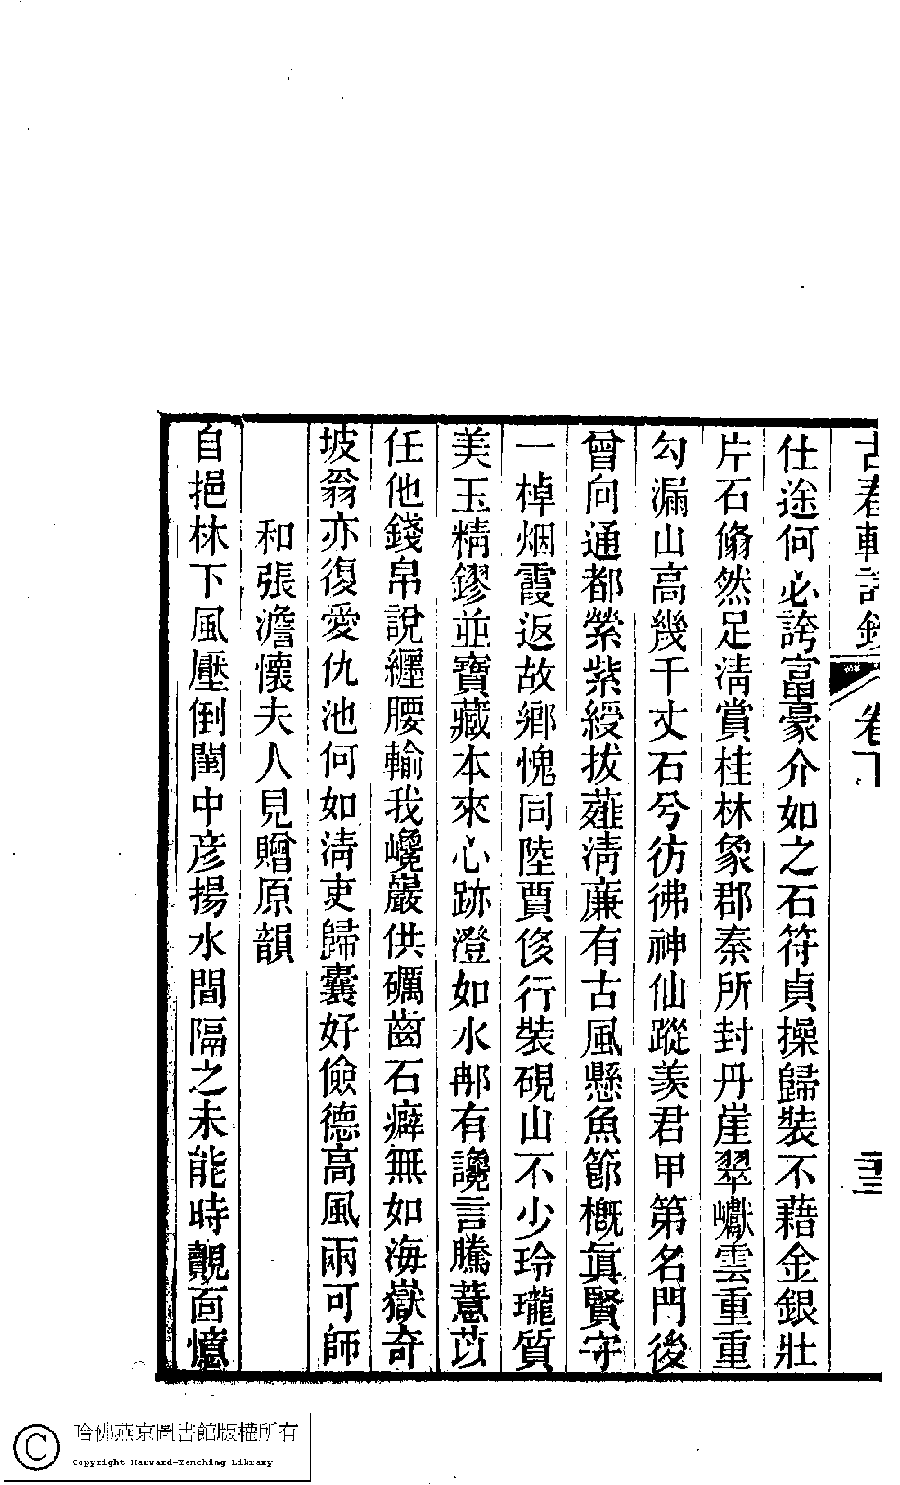 古春軒詩鈔 卷下 三三
仕途何必誇富豪介如之石符貞操歸裝不藉金銀壯
片石翛然足淸賞桂林象郡秦所封丹崖翠巘雲重重
勾漏山高幾千丈石兮彷彿神仙蹤羨君甲第名門後
曾向通都縈紫綬拔薤淸廉有古風懸魚節槪眞賢守
一棹烟霞返故鄕愧同陸賈侈行裝硯山不少玲瓏質
美玉精鏐並寶藏本來心跡澄如水郍有讒言騰薏苡
任他錢帛說纒腰輸我巉巖供礪齒石癖無如海嶽奇
坡翁亦復愛仇池何如淸吏歸囊好儉德高風兩可師
和張澹懷夫人見贈原韻
自挹林下風壓倒閨中彥揚水間隔之未能時覿面憶
哈佛燕京圖書館版權所有
Copyright Harvard-Yenching Library